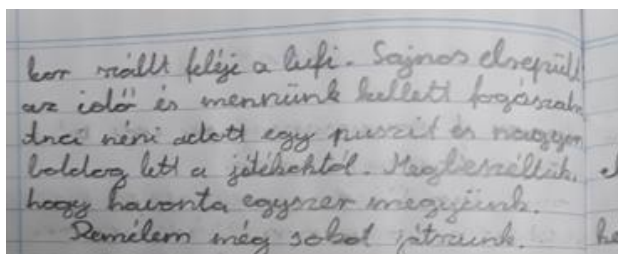 kor szállt feléje a lufi. Sajnos elrepült
az idő és mennünk kellett fogászatra
Anci néni adott egy puszit és nagyon
boldog lett a játékoktól. Megbeszéltük,
hogy havonta egyszer megyünk.
Remélem még sokat játszunk.